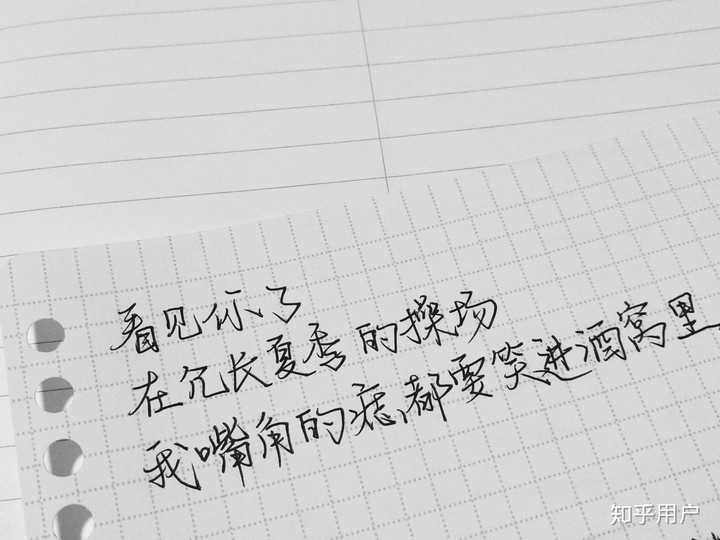 看见你了
在冗长夏季的操场
我嘴角的痣,都要笑进酒窝里
知乎用户